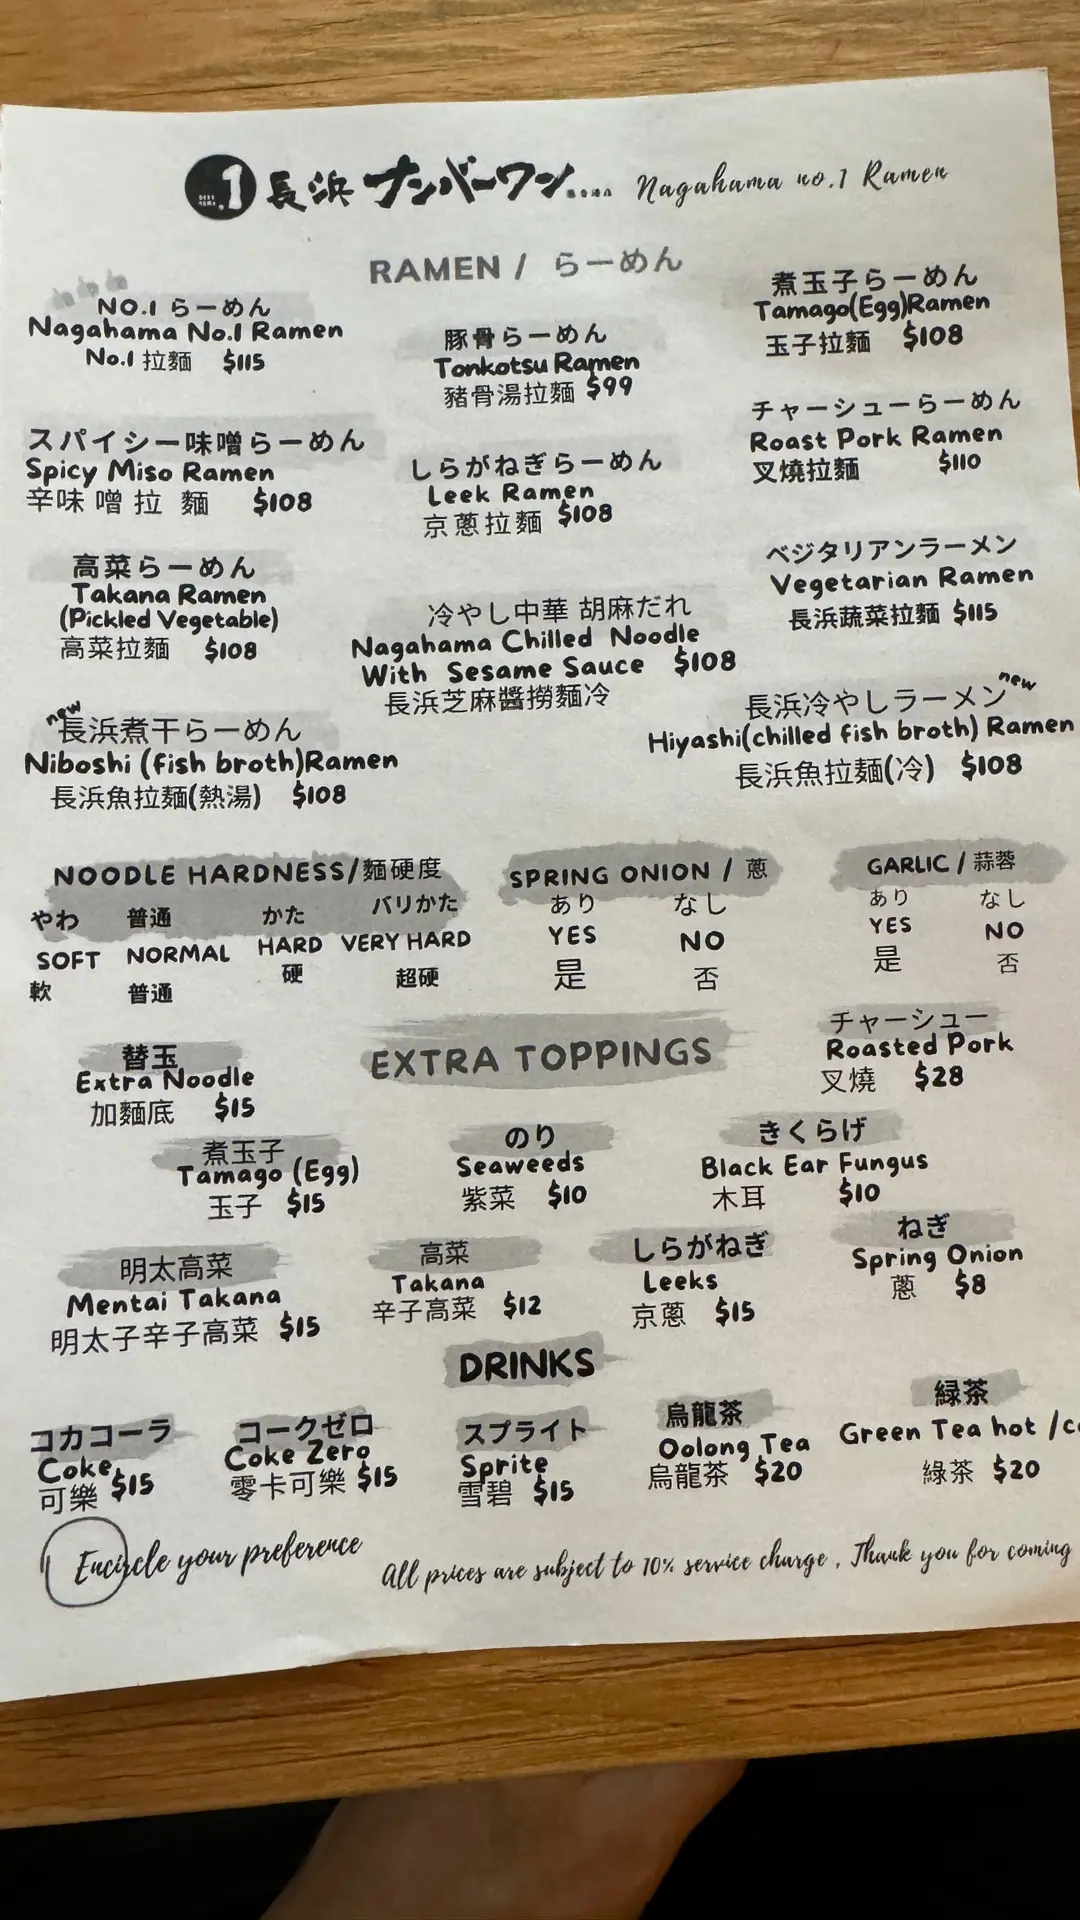 .1 長浜 ナンバーワン Nagahama no.1 Ramen
RAMEN / らーめん
NO.1 らーめん
Nagahama No.1 Ramen
No.1 拉麵 $115
豚骨らーめん
Tonkotsu Ramen
豬骨湯拉麵 $99
煮玉子らーめん
Tamago(Egg)Ramen
玉子拉麵 $108
スパイシー味噌らーめん
Spicy Miso Ramen
辛味噌拉麵 $108
しらがねぎらーめん
Leek Ramen
京蔥拉麵 $108
チャーシューらーめん
Roast Pork Ramen
叉燒拉麵 $110
高菜らーめん
Takana Ramen
(Pickled Vegetable)
高菜拉麵 $108
冷やし中華 胡麻だれ
Nagahama Chilled Noodle
With Sesame Sauce $108
長浜芝麻醬撈麵冷
ベジタリアンラーメン
Vegetarian Ramen
長浜蔬菜拉麵 $115
new
長浜煮干らーめん
Niboshi (fish broth)Ramen
長浜魚拉麵(熱湯) $108
new
長浜冷やしラーメン
Hiyashi(chilled fish broth) Ramen
長浜魚拉麵(冷) $108
NOODLE HARDNESS/麵硬度
やわ 普通 かた バリかた
SOFT NORMAL HARD VERY HARD
軟 普通 硬 超硬
SPRING ONION / 蔥
あり なし
YES NO
是 否
GARLIC / 蒜蓉
あり なし
YES NO
是 否
EXTRA TOPPINGS
替玉
Extra Noodle
加麵底 $15
チャーシュー
Roasted Pork
叉燒 $28
煮玉子
Tamago (Egg)
玉子 $15
のり
Seaweeds
紫菜 $10
きくらげ
Black Ear Fungus
木耳 $10
明太高菜
Mentai Takana
明太子辛子高菜 $15
高菜
Takana
辛子高菜 $12
しらがねぎ
Leeks
京蔥 $15
ねぎ
Spring Onion
蔥 $8
DRINKS
コカコーラ
Coke
可樂 $15
コークゼロ
Coke Zero
零卡可樂 $15
スプライト
Sprite
雪碧 $15
烏龍茶
Oolong Tea
烏龍茶 $20
緑茶
Green Tea hot /c
綠茶 $20
Encircle your preference
All prices are subject to 10% service charge , Thank you for coming